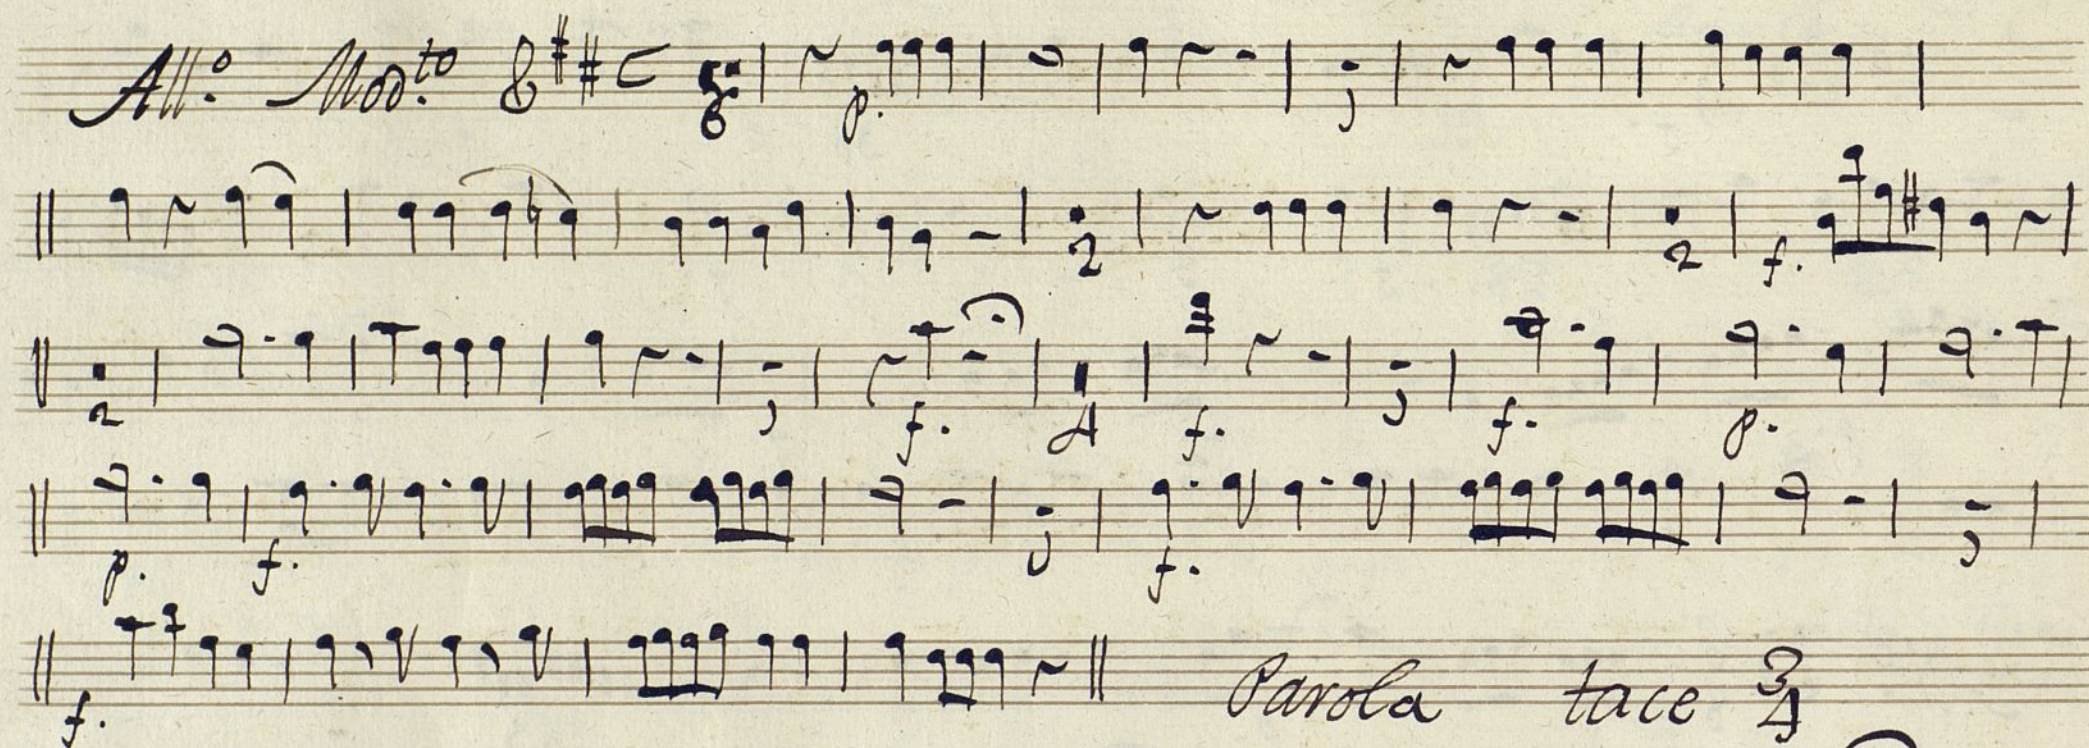 All:º Mod:to C 6
p.
2 2 f.
2 f. 4 f. f. p.
p. f. f.
f. Parola tace 3/4